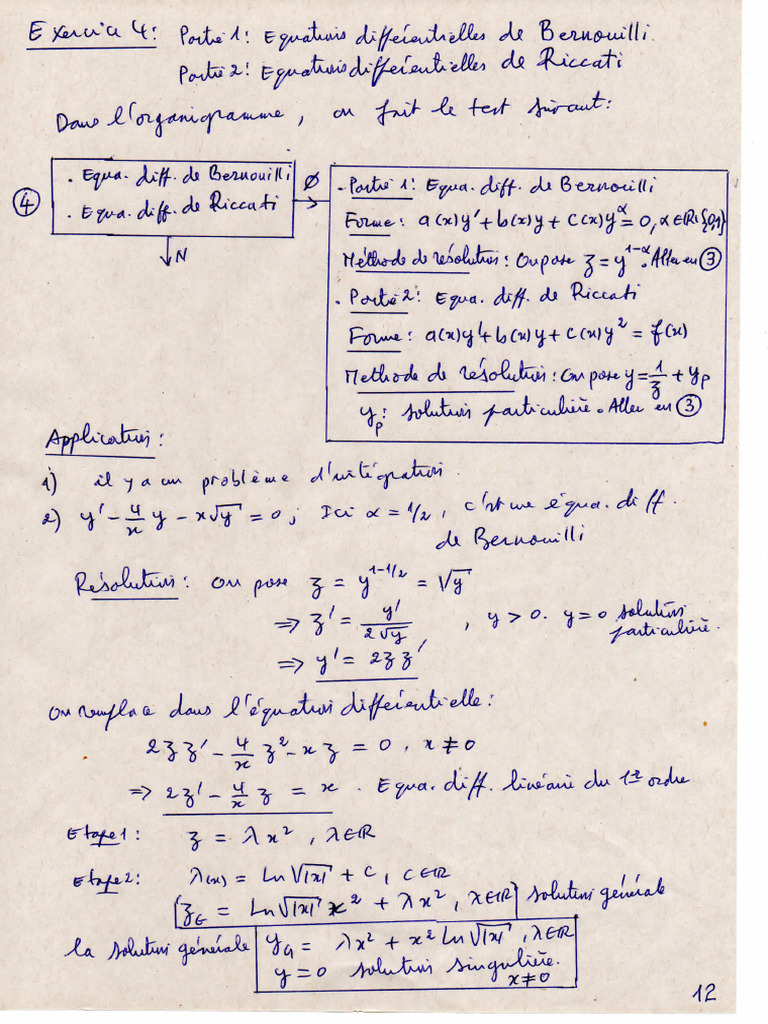 Exercice 4: Partie 1: Equations différentielles de Bernouilli.
Partie 2: Equations différentielles de Riccati
Dans l'organigramme, on fait le test suivant:
④
. Equa. diff. de Bernouilli
. Equa. diff. de Riccati
O
N
- Partie 1: Equa. diff. de Bernouilli
Forme: a(x)y' + b(x)y + c(x)y^α = 0, α ∈ ℝ\{0,1}
Méthode de résolution: On pose z = y^(1-α). Aller en ③
. Partie 2: Equa. diff. de Riccati
Forme: a(x)y' + b(x)y + c(x)y² = f(x)
Methode de résolution: On pose y = 1/z + y_p
y_p: solution particulière. Aller en ③
Application:
1) il y a un problème d'intégration.
2) y' - 4/x y - x√y = 0; Ici α = 1/2, c'est une équa. diff.
de Bernouilli
Résolution: On pose z = y^(1-1/2) = √y
⇒ z' = y'/(2√y), y > 0. y = 0 solution
particulière.
⇒ y' = 2zz'
On remplace dans l'équation différentielle:
2zz' - 4/x z² - xz = 0, x ≠ 0
⇒ 2z' - 4/x z = x. Equa. diff. linéaire du 1er ordre
Etape 1: z = λx², λ∈ℝ
Etape 2: λ(x) = Ln√|x| + C, C∈ℝ
z_G = Ln√|x| x² + λx², λ∈ℝ solution générale
la solution générale y_G = λx² + x² Ln√|x|, λ∈ℝ
y = 0 solution singulière.
x ≠ 0
12